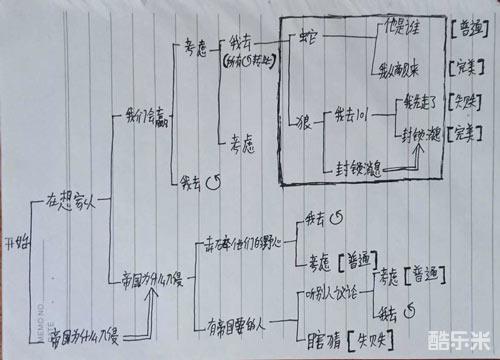 他是谁 [普通]
蛇
考虑
我去
(所有
我从帝国来 [完美]
我们会赢
狼
我去101
我先走了 [失败]
考虑
封锁消息 [完美]
我去
封锁消息
在想家人
开始
我去
击碎他们的野心
考虑 [普通]
帝国为什么入侵
听别人议论
考虑 [普通]
我去
有帝国要的人
瞎猜 [失败]
帝国为什么入侵
MEMO NO.
DATE
酷乐米